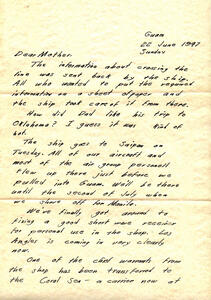 Guam
22 June 1947
Sunday
Dear Mother,
The information about crossing the
line was sent back by the ship.
All who wanted to put the required
information on a sheet of paper and
the ship took care of it from there.
How did Dad like his trip to
Oklahoma? I guess it was kind of
hot.
The ship goes to Saipan on
Tuesday. All of our aircraft and
most of the air group personnel
flew up there just before we
pulled into Guam. We'll be there
until the second of July when
we shove off for Manila.
We've finally got around to
fixing a good short wave receiver
for personal use in the shop. Los
Angles is coming in very clearly
now.
One of the chief warrants from
the ship has been transferred to
the Coral Sea - a carrier now at